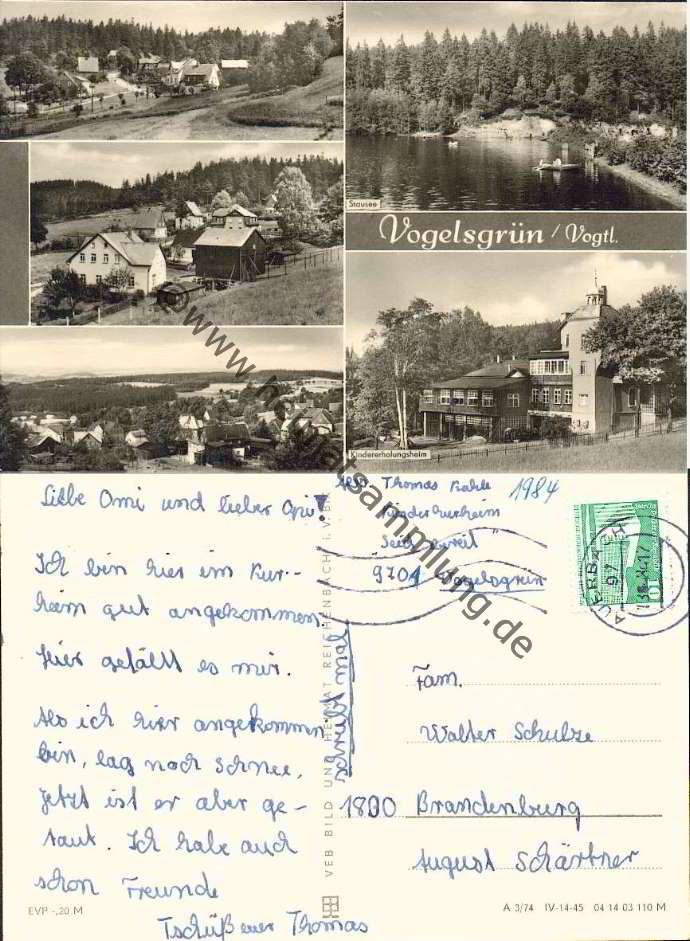 Stausee
Vogelsgrün / Vogtl.
Kindererholungsheim
©www.heimatsammlung.de
Liebe Omi und lieber Opi!
Ich bin hier im Kur-
heim gut angekommen.
Hier gefällt es mir.
Als ich hier angekommn
bin, lag noch Schnee.
Jetzt ist er aber ge-
taut. Ich habe auch
schon Freunde
Tschüß euer Thomas
schreibt mal
VEB BILD UND HEIMAT REICHENBACH I. V.
Abs. Thomas
1984
Kinderkurheim
"Seid bereit"
9701 Vogelsgrün
AUERBACH
10
Fam.
Walter Schulze
1800 Brandenburg
August Schärttner
EVP -,20 M
A 3/74 IV-14-45 04 14 03 110 M